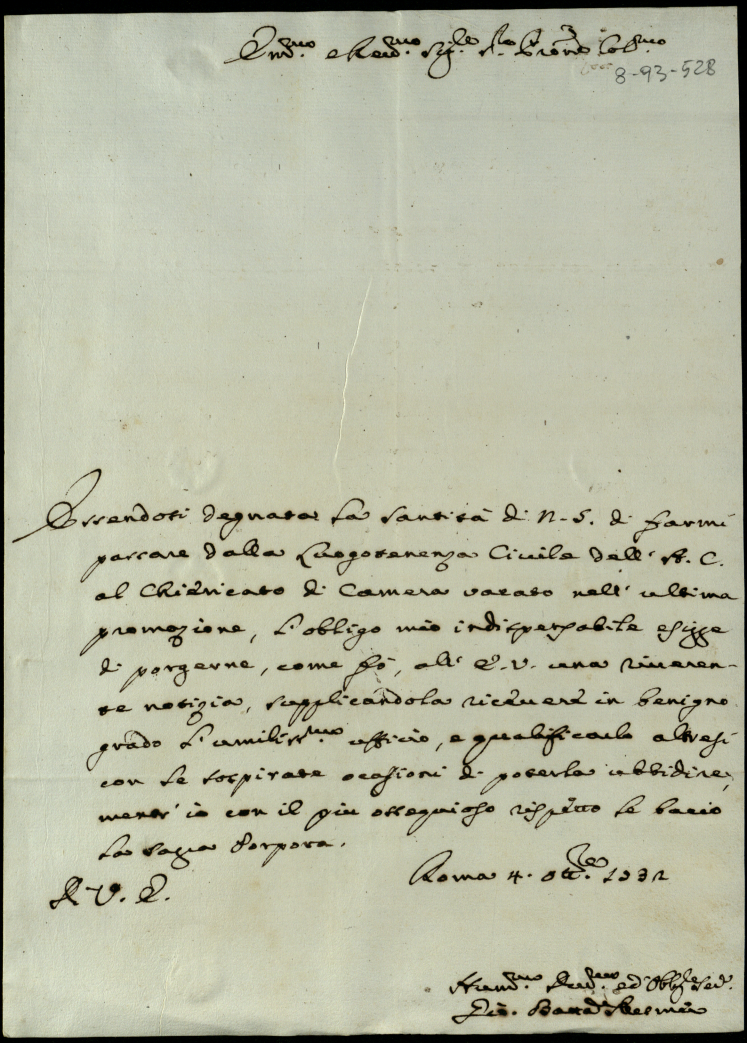 Em.mo e Rev.mo Sig.re Sig.r P.rone Col.mo
8-93-528
Essendosi degnata la Santità di N. S. di farmi
passare dalla Luogotenenza Civile dell' A. C.
al Chiericato di Camera vacato nell' ultima
promozione, l'obligo mio indispensabile esigge
di porgerne, come fò, all' E. V. una riveren-
te notizia, supplicandola ricevere in benigno
grado l'umiliss.mo ufficio, e qualificarlo altresì
con le sospirate ocasioni di poterla ubbidire,
mentr' io con il più ossequioso rispetto le bacio
la sagra Porpora.
Roma 4. Ott.re
D. V. E.
Hum.mo Dev.mo ed Obbl. Ser.
Gio. Batta